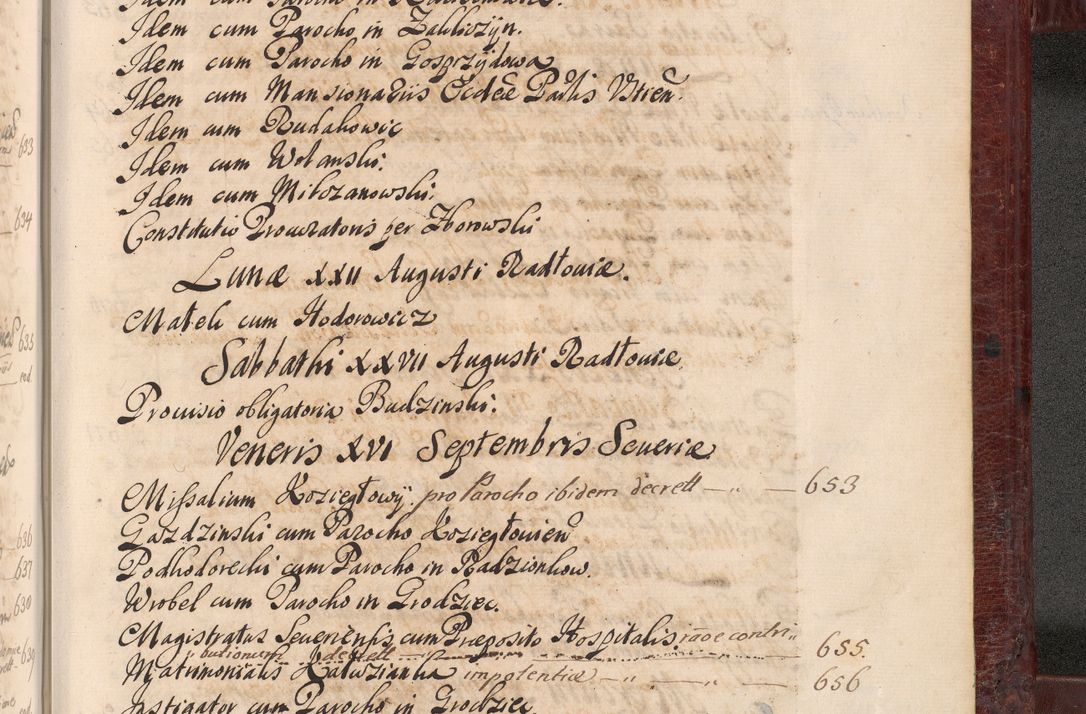 Idem cum Parocho in
Idem cum Parocho in Zakliczyn.
Idem cum Parocho in Gosprzydowa
Idem cum Mansionariis Ecclae Parlis Vstien.
Idem cum Rudakowic
Idem cum Wolanski.
Idem cum Milozanowski.
Constitutio Procuratoris per Zborowski
Lunæ XXII Augusti Radłoviæ.
Mateli cum Hodorowicz
Sabbathi XXVII Augusti Radłoviæ.
Provisio obligatoria Budzinski.
Veneris XVI Septembris Severiæ
Missalium Koziegłowij pro Parocho ibidem decrett — „ — 653
Gazdzinski cum Parocho Koziegłovien
Podhodorecki cum Parocho in Radzionkow.
Wrobel cum Parocho in Grodziec.
Magistratus Severiensis cum Præposito Hospitalis raõe contri„ 655.
„ butionum decrett
Matrimonialis impotentiæ — „ — „ — 656
Instigator cum Parocho in Grodziec.
633
634
635
636
637
630
639